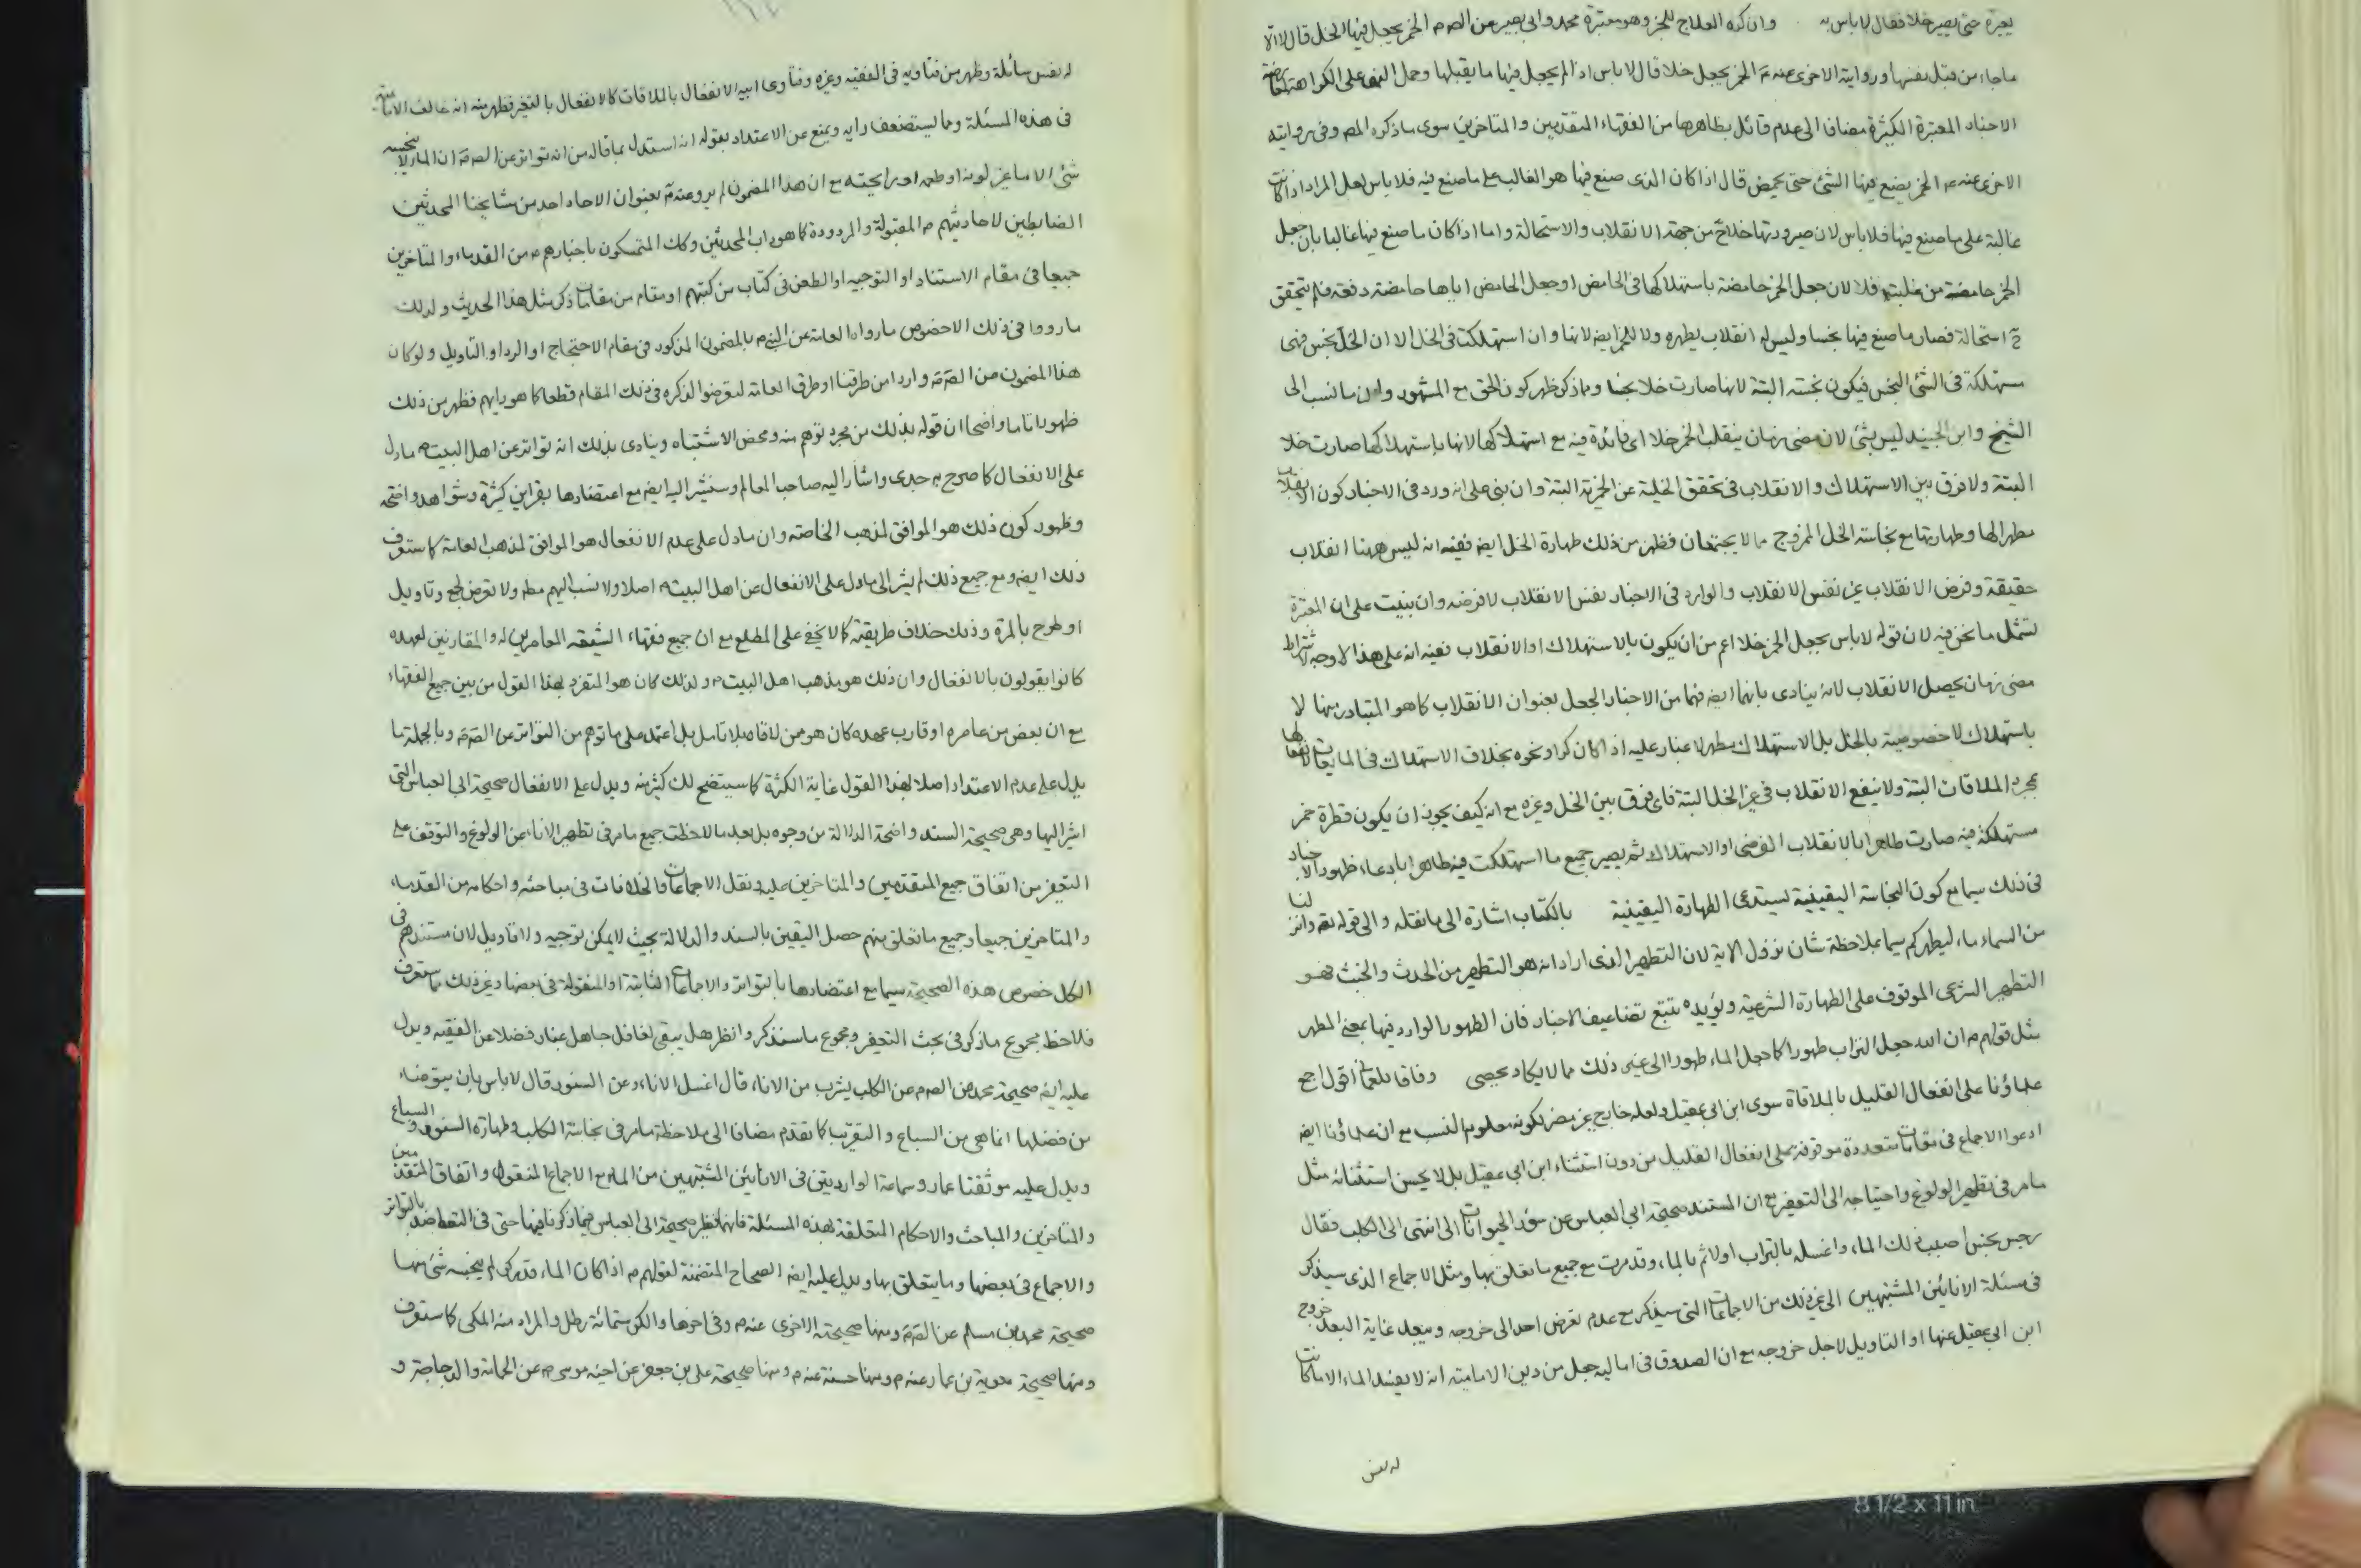 يجزه حتى يصير خلا فقال لا باس به وان كره العلاج للخبر وهو معتبرة محمد وابي بصير عن الصم الخمر يجعل فيها الخل قال لا الا
ما جاء من قبل نفسها ورواية الاخرى عنه م الخمر يجعل خلا قال لا باس اذا لم يجعل فيها ما يقلبها وحمل النهى على الكراهة
الاخبار المعتبرة الكثيرة مضافا الى عدم قائل بظاهرها من الفقهاء المتقدمين والمتاخرين سوى ما ذكره المص وفى روايته
الاخرى عنه م الخمر يضع فيها الشئ حتى يحمض قال اذا كان الذى صنع فيها هو الغالب على ما صنع فيه فلا باس لعل المراد اذا كانت
غالبة على ما صنع فيها فلا باس لان صيرورتها خلا ح من جهة الانقلاب والاستحالة واما اذا كان ما صنع فيها غالبا بان جعل
الخمر حامضة من غلبته فلا لان جعل الخمر حامضة باستهلاكها فى الحامض او جعل الحامض اياها حامضة دفعة فلم يتحقق
ح استحالة فصار ما صنع فيها نجسا وليس له انقلاب يطهره ولا للخمر ايضه لانها وان استهلكت فى الخل الا ان الخل نجس فهى
مستهلكة فى الشئ النجس فيكون نجسته البتة لانها صارت خلا نجسا ومما ذكر ظهر كون الحق مع المشهور وان ما نسب الى
الشيخ وابن الجنيد ليس بشئ لان مضى زمان ينقلب الخمر خلا اى فائدة فيه مع استهلاكها لانها باستهلاكها صارت خلا
البتة ولا فرق بين الاستهلاك والانقلاب فى تحقق الخلية عن الخمرية البتة وان بنى على انه ورد فى الاخبار كون الانقلاب
مطهرا لها وطهارتها مع نجاسة الخل الممزوج مما لا يجتمعان فظهر من ذلك طهارة الخل ايضه ففيه انه ليس ههنا انقلاب
حقيقة وفرض الانقلاب غير نفس الانقلاب والوارد فى الاخبار نفس الانقلاب لا فرضه وان بنيت على ان المعتبرة
تشمل ما نحن فيه لان قوله لا باس بجعل الخمر خلا اعم من ان يكون بالاستهلاك او الانقلاب ففيه انه على هذا لا وجه لاشتراط
مضى زمان يحصل الانقلاب لانه ينادى بانهما ايضه فهما من الاخبار الجعل بعنوان الانقلاب كما هو المتبادر منها لا
باستهلاك لا خصوصية بالخل بل الاستهلاك مطهر لا غبار عليه اذا كان كرا ونحوه بخلاف الاستهلاك فى المايعات لانفعالها
بمجرد الملاقات البتة ولا ينفع الانقلاب فى غير الخل البتة فاى فرق بين الخل وغيره مع انه كيف يجوز ان يكون قطرة خمر
مستهلكة فيه صارت طاهرا بالانقلاب الفرضى او الاستهلاك ثم يصير جميع ما استهلكت فيه طاهرا بادعاء ظهور الاخبار
فى ذلك سيما مع كون النجاسة اليقينية تستدعى الطهارة اليقينية بالكتاب اشارة الى ما نقله والى قوله تعه وانزلنا
من السماء ماء ليطهركم سيما بملاحظة شان نزول الاية لان التطهير الذى اراد الله هو التطهر من الحدث والخبث فهو
التطهير الشرعى الموقوف على الطهارة الشرعية ويؤيده تتبع تضاعيف الاخبار فان الطهور الوارد فيها بمعنى المطهر
مثل قولهم م ان الله جعل التراب طهورا كما جعل الماء طهورا الى غير ذلك مما لا يكاد يحصى وفاقا للعمانى اقول اجمع
علماؤنا على انفعال القليل بالملاقاة سوى ابن ابى عقيل ولعله خارج غير مضر لكونه معلوم النسب مع ان علماؤنا ايضه
ادعوا الاجماع فى مقامات متعددة موقوفة على انفعال القليل من دون استثناء ابن ابى عقيل بل لا يحسن استثنائه مثل
ما مر فى تطهير الولوغ واحتياجه الى التعفير مع ان المستند صحيحة ابى العباس عن سؤر الحيوانات الى ان انتهى الى الكلب فقال
رجس نجس اصبب ذلك الماء واغسله بالتراب اولا ثم بالماء وقد مرت مع جميع ما تعلق بها ومثل الاجماع الذى سيذكر
فى مسئلة الانائين المشتبهين الى غير ذلك من الاجماعات التى سيذكر مع عدم تعرض احد الى خروجه ويبعد غاية البعد خروج
ابن ابى عقيل عنها او التاويل لاجل خروجه مع ان الصدوق فى اماليه جعل من دين الامامية انه لا يفسد الماء الا ما كانت
له نفس
له نفس سائلة وظهر من فتاويه فى الفقيه وغيره وفتاوى ابيه الانفعال بالملاقات كالانفعال بالتغير فظهر منه انه خالف الامامية
فى هذه المسئلة ومما يستضعف رايه ويمنع عن الاعتداد بقوله انه استدل بما قاله من انه تواتر عن الصم ان الماء لا ينجسه
شئ الا ما غير لونه او طعمه او رايحته مع ان هذا المضمون لم يرو عنه م بعنوان الاحاد احد من مشايخنا المحدثين
الضابطين لاحاديثهم م المقبولة والمردودة كما هو داب المحدثين وكك المتمسكون باخبارهم م من القدماء والمتاخرين
جميعا فى مقام الاستناد او التوجيه او الطعن فى كتاب من كتبهم او مقام من مقامات ذكر مثل هذا الحديث ولذلك
ما رووا فى ذلك الا خصوص ما رواه العامة عن النبى م بالمضمون المذكور فى مقام الاحتجاج او الرد او التاويل ولو كان
هذا المضمون من الصم واردا من طرقنا او طرق العامة لتعرضوا لذكره فى ذلك المقام قطعا كما هو دابهم فظهر من ذلك
ظهورا تاما واضحا ان قوله بذلك من مجرد توهم منه ومحض الاشتباه وينادى بذلك انه تواتر عن اهل البيت م ما دل
على الانفعال كما صرح به جدى واشار اليه صاحب المعالم وسنشير اليه ايضه مع اعتضادها بقراين كثيرة وشواهد واضحة
وظهور كون ذلك هو الموافق لمذهب الخاصة وان ما دل على عدم الانفعال هو الموافق لمذهب العامة كما ستعرف
ذلك ايضه ومع جميع ذلك لم يشر الى ما دل على الانفعال من اهل البيت م اصلا ولا نسب اليهم مطه ولا تعرض لجمع وتاويل
او طرح بالمرة وذلك خلاف طريقته كما لا يخفى على المطلع مع ان جميع فقهاء الشيعة المعاصرين له والمقارنين لعهده
كانوا يقولون بالانفعال وان ذلك هو مذهب اهل البيت م ولذلك كان هو المتفرد بهذا القول من بين جميع الفقهاء
مع ان بعض من عاصره او قارب عهده كان هو ممن لاقاه بلا تامل بل اعتمد على ما توهم من التواتر عن الصم وبالجملة ما
يدل على عدم الاعتداد اصلا بهذا القول غاية الكثرة كما سيتضح لك كثير منه ويدل على الانفعال صحيحة ابى العباس التى
اشير اليها وهى صحيحة السند واضحة الدلالة من وجوه بل بعد ملاحظت جميع ما مر فى تطهير الاناء عن الولوغ والتوقف على
التعفير من اتفاق جميع المتقدمين والمتاخرين عليه ونقل الاجماعات والخلافات فى مباحثه واحكامه من القدماء
والمتاخرين جميعا وجميع ما تعلق بهم حصل اليقين بالسند والدلالة بحيث لا يمكن توجيه ولا تاويل لان مستندهم فى
الكل خصوص هذه الصحيحة سيما مع اعتضادها بالتواتر والاجماعات الثابتة او المنقولة فى بعضها وغير ذلك مما ستعرف
فلاحظ مجموع ما ذكر فى بحث التعفير ومجموع ما سنذكر وانظر هل يبقى لغافل جاهل غبار فضلا عن الفقيه ويدل
عليه ايضه صحيحة محمد عن الصم عن الكلب يشرب من الاناء قال اغسل الاناء وعن السنور قال لا باس بان يتوضاء
من فضلها انما هى من السباع والتقريب كما تقدم مضافا الى ملاحظة ما مر فى نجاسة الكلب وطهارة السنور والسباع
ويدل عليه موثقتا عمار وسماعة الواردتين فى الانائين المشتبهين من الماء مع الاجماع المنقول واتفاق المتقدمين
والمتاخرين والمباحث والاحكام المتعلقة بهذه المسئلة فانها نظير صحيحة ابى العباس فيما ذكرنا فيها حتى فى التعاضد بالتواتر
والاجماع فى بعضها وما يتعلق بها ويدل عليه ايضه الصحاح المتضمنة لقولهم م اذا كان الماء قدر كر لم ينجسه شئ منها
صحيحة محمد بن مسلم عن الصم ومنها صحيحته الاخرى عنه م وفى اخرها والكر ستمائة رطل والمراد منه المكى كما ستعرف
ومنها صحيحة معوية بن عمار عنه م ومنها حسنة عنه م ومنها صحيحة على بن جعفر عن اخيه موسى م عن الحمامة والدجاجة و
8 1/2 x 11 in